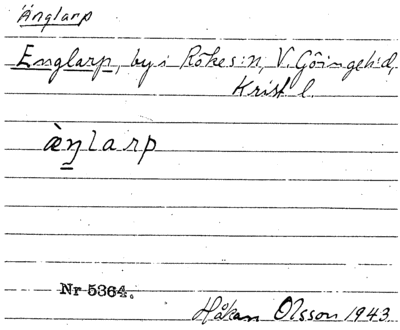 Änglarp
Englarp, by i Rökes:n, V. Göingeh:d,
Krist l.
àŋlarp
Nr 5364.
Håkan Olsson 1943.